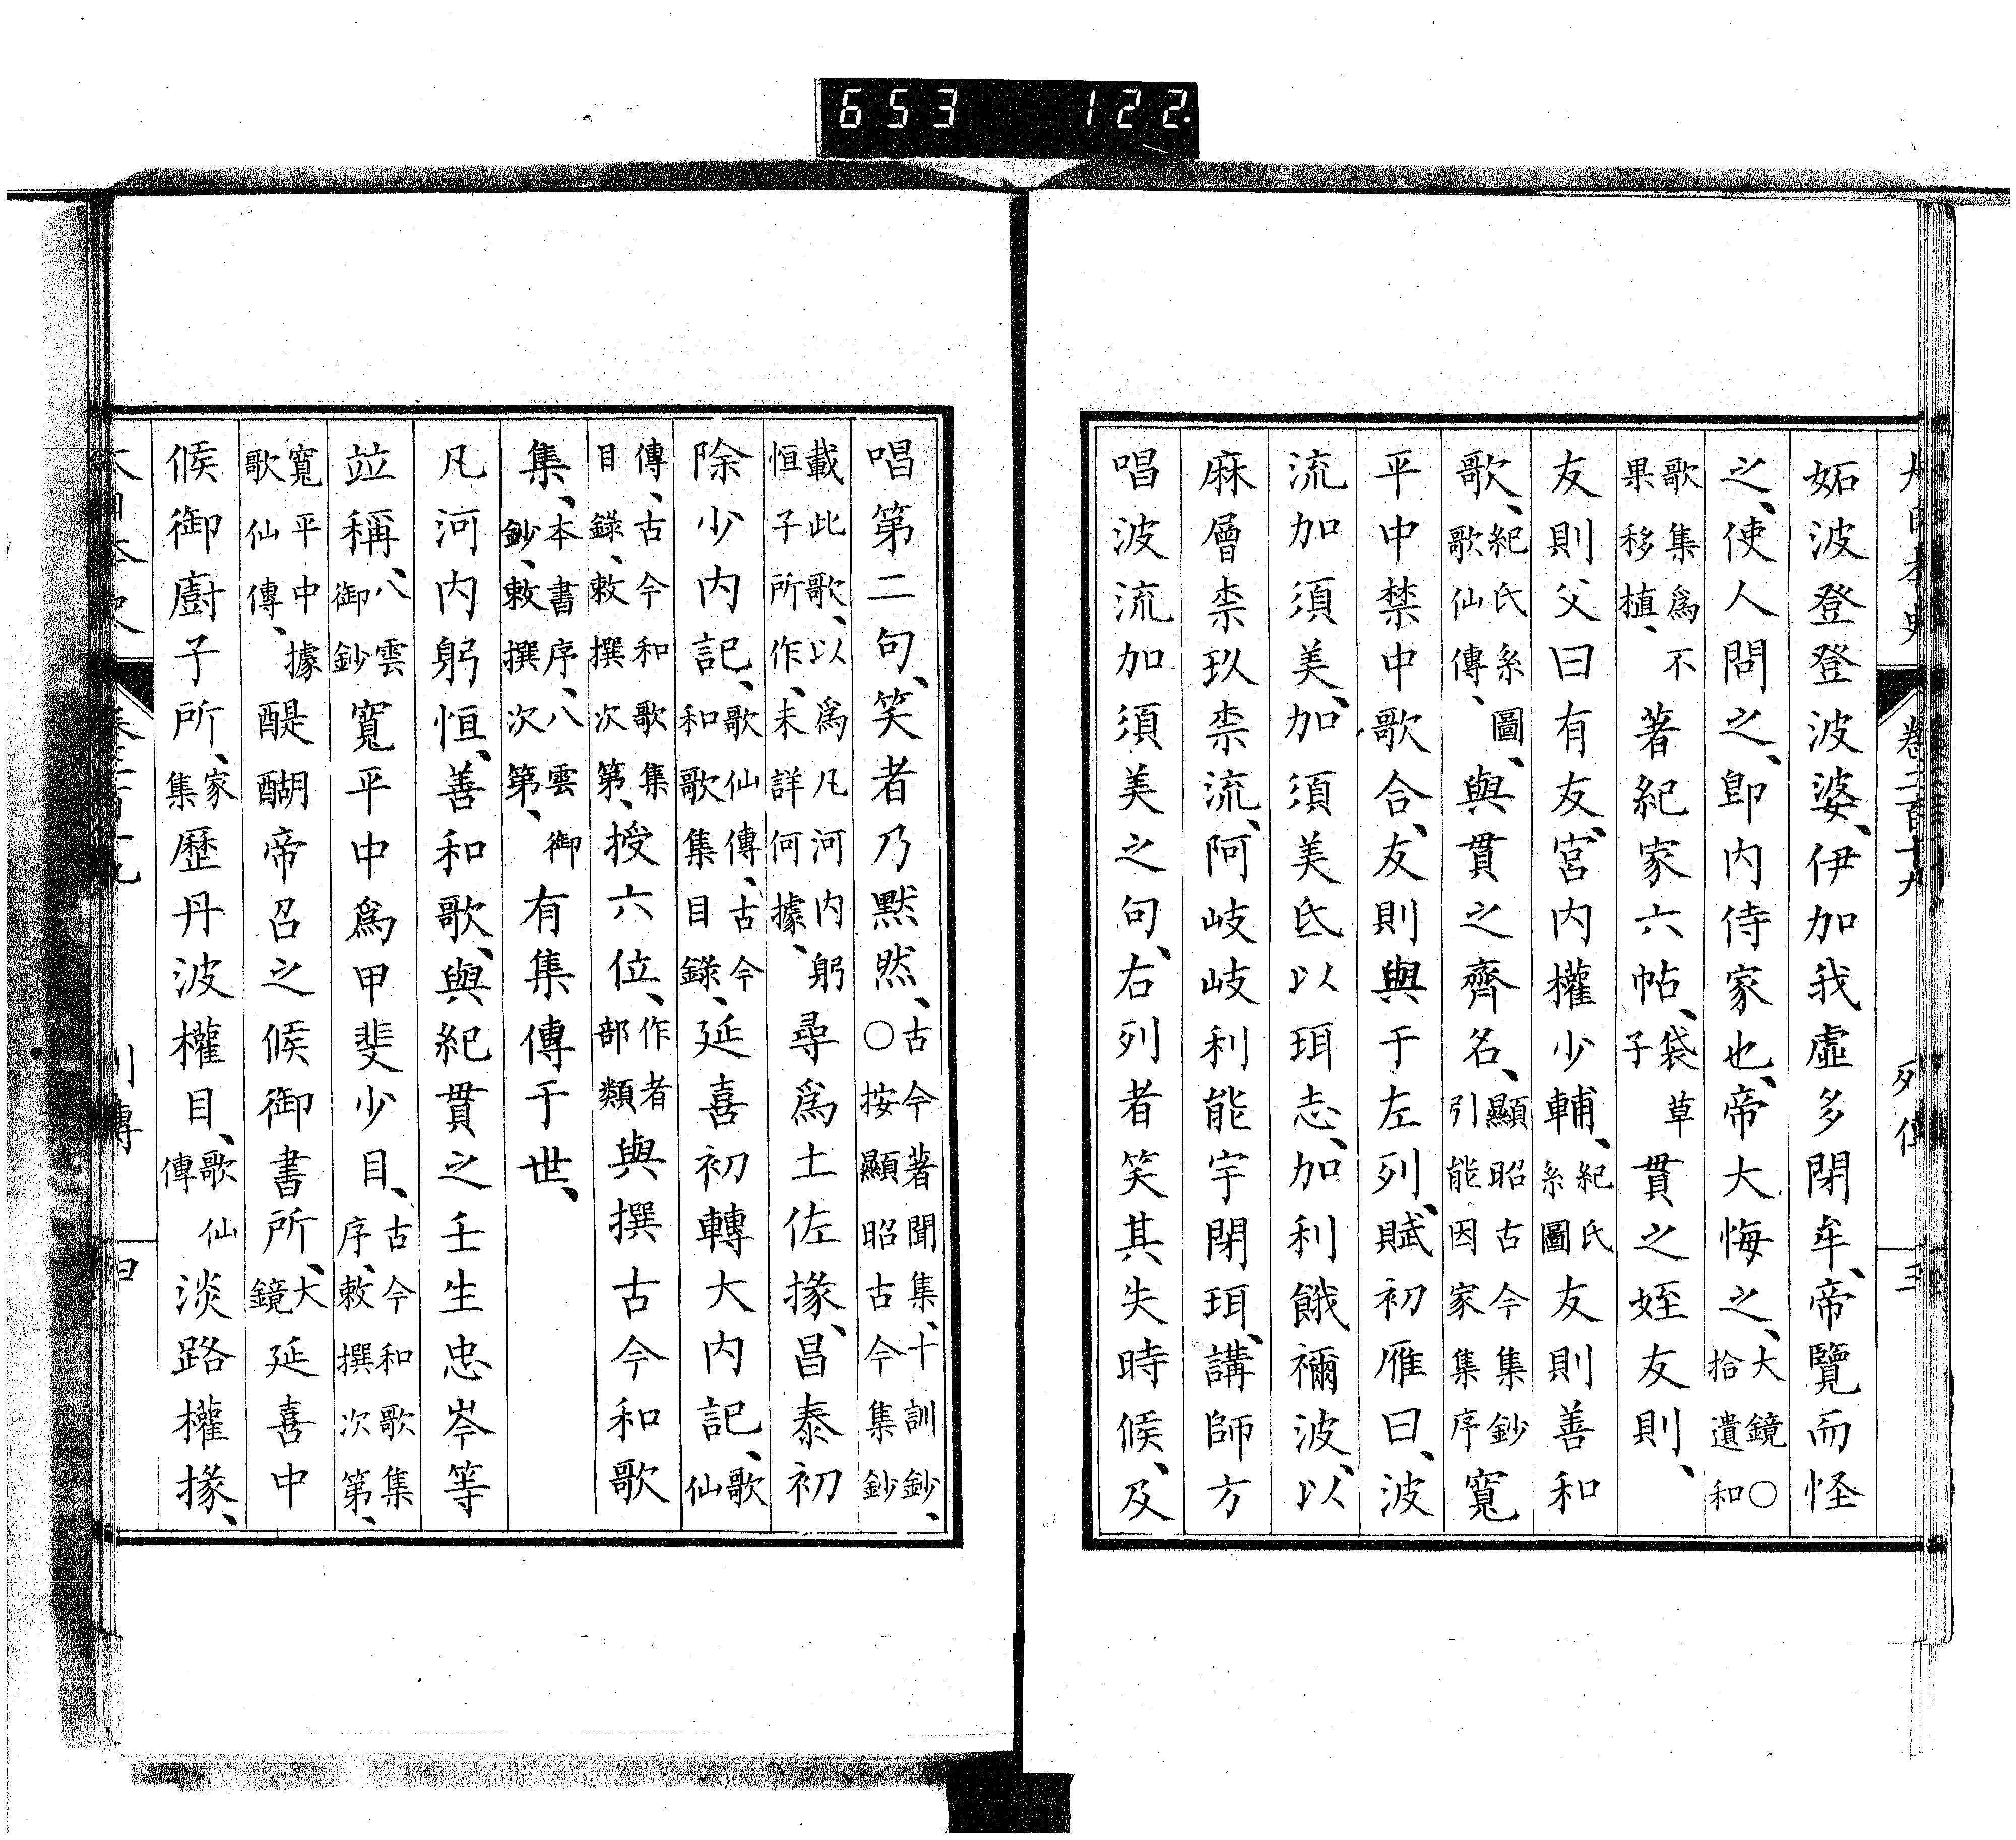 653 122.
大日本史 卷二百十九 列傳 三
妬波登登波婆、伊加我虛多閉牟、帝覽而怪
之、使人問之、卽內侍家也、帝大悔之、大鏡○拾遺和
歌集爲不果移植、著紀家六帖、袋草子貫之姪友則、
友則父曰有友、宮內權少輔、紀氏系圖友則善和
歌、紀氏系圖、歌仙傳、與貫之齊名、顯昭古今集鈔引能因家集序寬
平中禁中歌合、友則與于左列、賦初雁曰、波
流加須美、加須美氐以珥志、加利餓禰波、以
麻層柰玖柰流、阿岐岐利能宇閉珥、講師方
唱波流加須美之句、右列者笑其失時候、及
唱第二句、笑者乃默然、古今著聞集、十訓鈔、○按顯昭古今集鈔
載此歌、以爲凡河內躬恒子所作、未詳何據、尋爲土佐掾、昌泰初
除少內記、歌仙傳、古今和歌集目錄、延喜初轉大內記、歌仙
傳、古今和歌集目錄、敕撰次第、授六位、作者部類與撰古今和歌
集、本書序、八雲御鈔、敕撰次第、有集傳于世、
凡河內躬恒、善和歌、與紀貫之壬生忠岑等
竝稱、八雲御鈔寬平中爲甲斐少目、古今和歌集序、敕撰次第、
寬平中據歌仙傳、醍醐帝召之候御書所、大鏡延喜中
候御廚子所、家集歷丹波權目、歌仙傳淡路權掾、
大日本史 卷二百十九 列傳 四